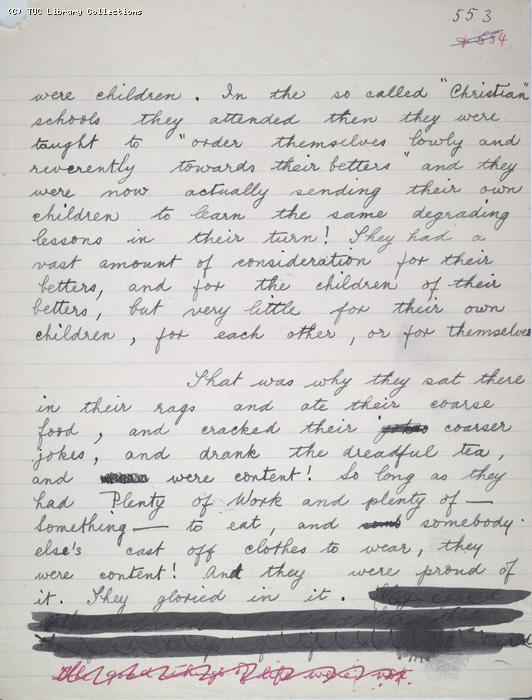 (C) TUC Library Collections
553
554
were children. In the so called "Christian"
schools they attended then they were
taught to "order themselves lowly and
reverently towards their betters" and they
were now actually sending their own
children to learn the same degrading
lessons in their turn! They had a
vast amount of consideration for their
betters, and for the children of their
betters, but very little for their own
children, for each other, or for themselves
That was why they sat there
in their rags and ate their coarse
food, and cracked their jokes coarser
jokes, and drank the dreadful tea,
and were content! So long as they
had Plenty of Work and plenty of —
Something — to eat, and somebody
else's cast off clothes to wear, they
were content! And they were proud of
it. They gloried in it.